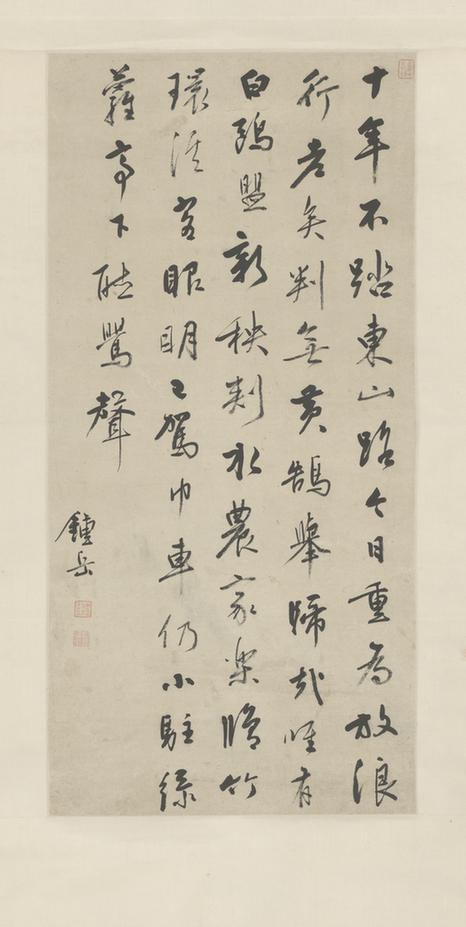 十年不踏東山路今日重為放浪
行老矣判無黃鵠舉歸哉唯有
白鷗盟新秧刺水農家樂脩竹
環溪客眼明已駕巾車仍小駐綠
蘿高下聽鶯聲
鍾岳